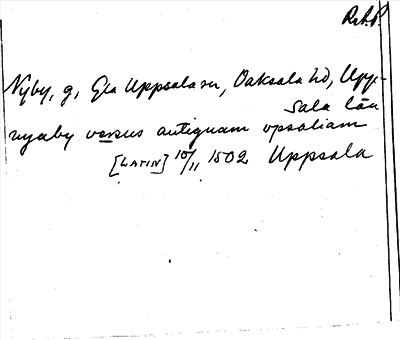 RAP.
Nyby, g, Gla Uppsala sn, Vaksala hd, Upp-
sala län
nyaby versus antiquam vpsaliam
[LATIN] 10/11 1502 Uppsala